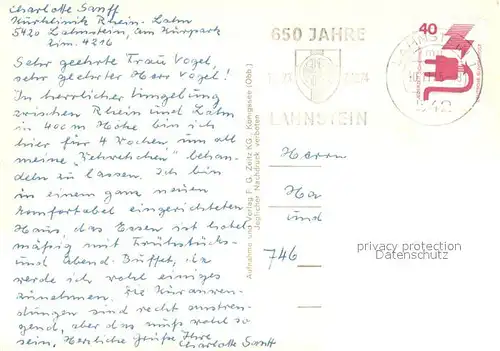 Charlotte Sanff
Kurklinik Rhein-Lahn
5420 Lahnstein, Am Kurpark
Zim. 4216
Sehr geehrte Frau Vogel,
sehr geehrter Herr Vogel!
In herrlicher Umgebung
zwischen Rhein und Lahn
in 400 m Höhe bin ich
hier für 4 Wochen, um all
meine „Wehwehchen" behan-
deln zu lassen. Ich bin
in einem ganz neuen
komfortabel eingerichteten
Haus, das Essen ist hotel
mäßig mit Frühstücks-
und Abend-Buffet, da
werde ich wohl einiges
zunehmen. Die Kuranwen-
dungen sind recht anstren-
gend, aber das muß wohl so
sein. Herzliche Grüße Ihre
Charlotte Sanff
Aufnahme und Verlag F. G. Zeitz KG., Königssee/Obb.
Jeglicher Nachdruck verboten
650 JAHRE
LAHNSTEIN
40
LAHNST
542
Herrn
Ha
und
746
privacy protection
Datenschutz